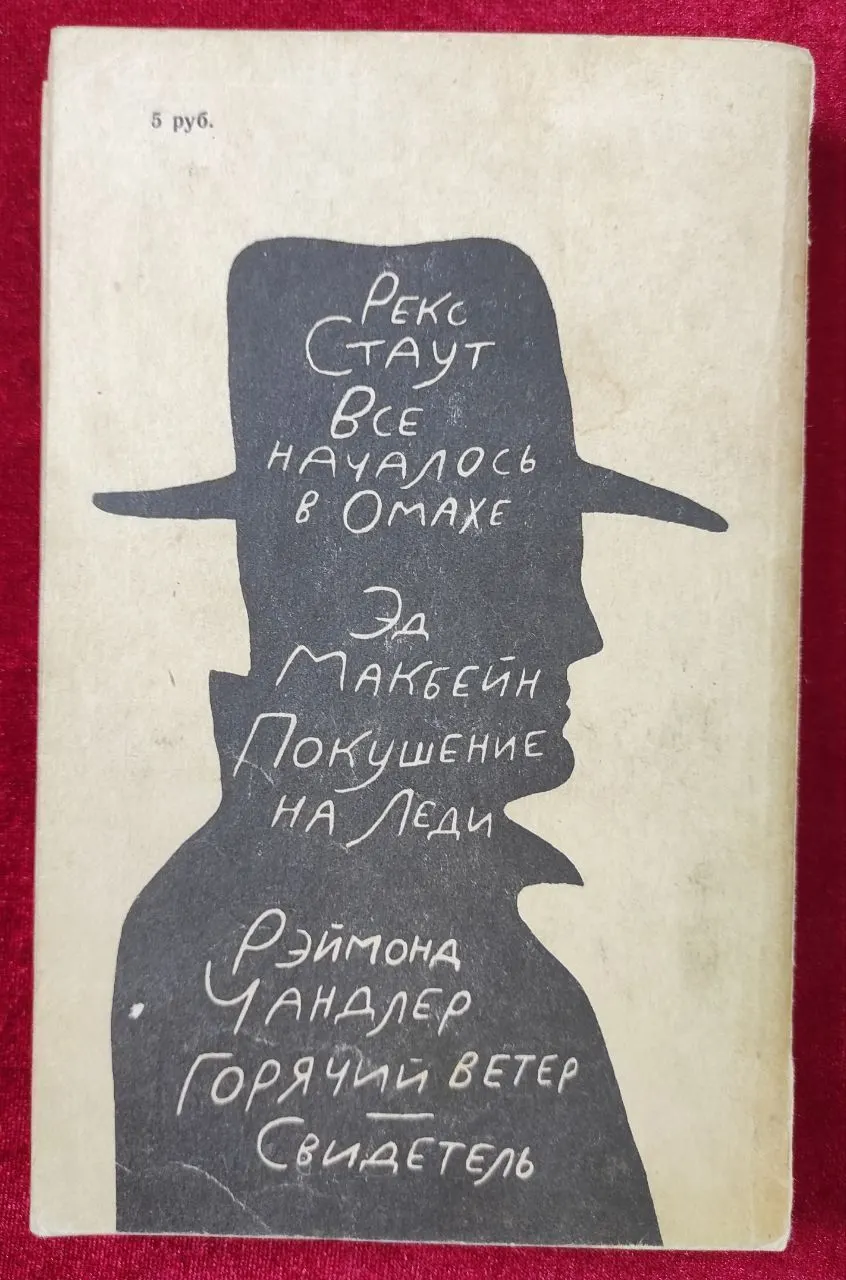 5 руб.
Рекс
Стаут
Все
началось
в Омахе
Эд
Макбейн
Покушение
на Леди
Рэймонд
Чандлер
Горячий ветер
—
Свидетель